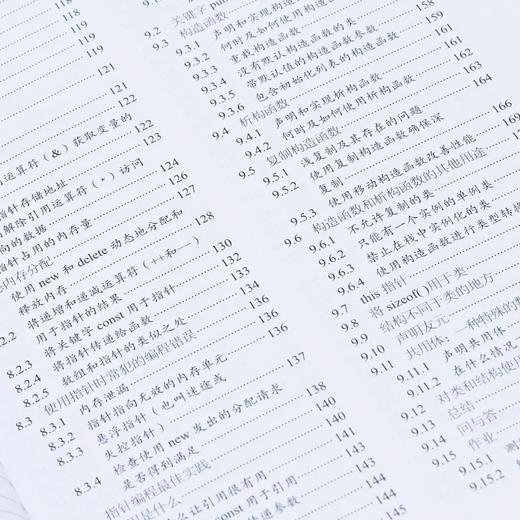 118
118
119
119
121
121
122
运算符（&）获取变量的
122
指针存储地址
123
解除引用运算符（*）访问
向的数据
124
指针占用的内存量
126
内存分配
127
使用 new 和 delete 动态地分配和
释放内存
128
8.2.2 将递增和递减运算符（++和--）
用于指针的结果
130
8.2.3 将关键字 const 用于指针
132
8.2.4 将指针传递给函数
134
8.2.5 数组和指针的类似之处
136
8.3 使用指针时常犯的编程错误
136
8.3.1 内存泄漏
136
8.3.2 指针指向无效的内存单元
137
8.3.3 悬浮指针（也叫迷途或
失控指针）
138
8.3.4 检查使用 new 发出的分配请求
是否得到满足
140
指针编程最佳实践
140
用是什么
141
么让引用很有用
143
const 用于引用
144
传递参数
145
9.2 关键字
9.3 构造函数
158
9.3.1 声明和实现构造
9.3.2 何时及如何使用构造函
9.3.3 重载构造函数
9.3.4 没有默认构造函数的类
159
9.3.5 带默认值的构造函数参数
160
9.3.6 包含初始化列表的构造函数
161
9.4 析构函数
161
9.4.1 声明和实现析构函数
162
9.4.2 何时及如何使用析构函数
164
9.5 复制构造函数
9.5.1 浅复制及其存在的问题
9.5.2 使用复制构造函数确保深
166
复制
9.5.3 使用移动构造函数改善性能
9.6 构造函数和析构函数的其他用途
9.6.1 不允许复制的类
9.6.2 只能有一个实例的单例类
9.6.3 禁止在栈中实例化的类
9.6.4 使用构造函数进行类型转换
9.7 this 指针
9.8 将 sizeof( )用于类
9.9 结构不同于类的地方
9.10 声明友元
9.11 共用体：一种特殊的
9.11.1 声明共用体
9.11.2 在什么情况
9.12 对类和结构使
9.13 总结
9.14 问与答
9.15 作业
9.15.1 测
9.15.2